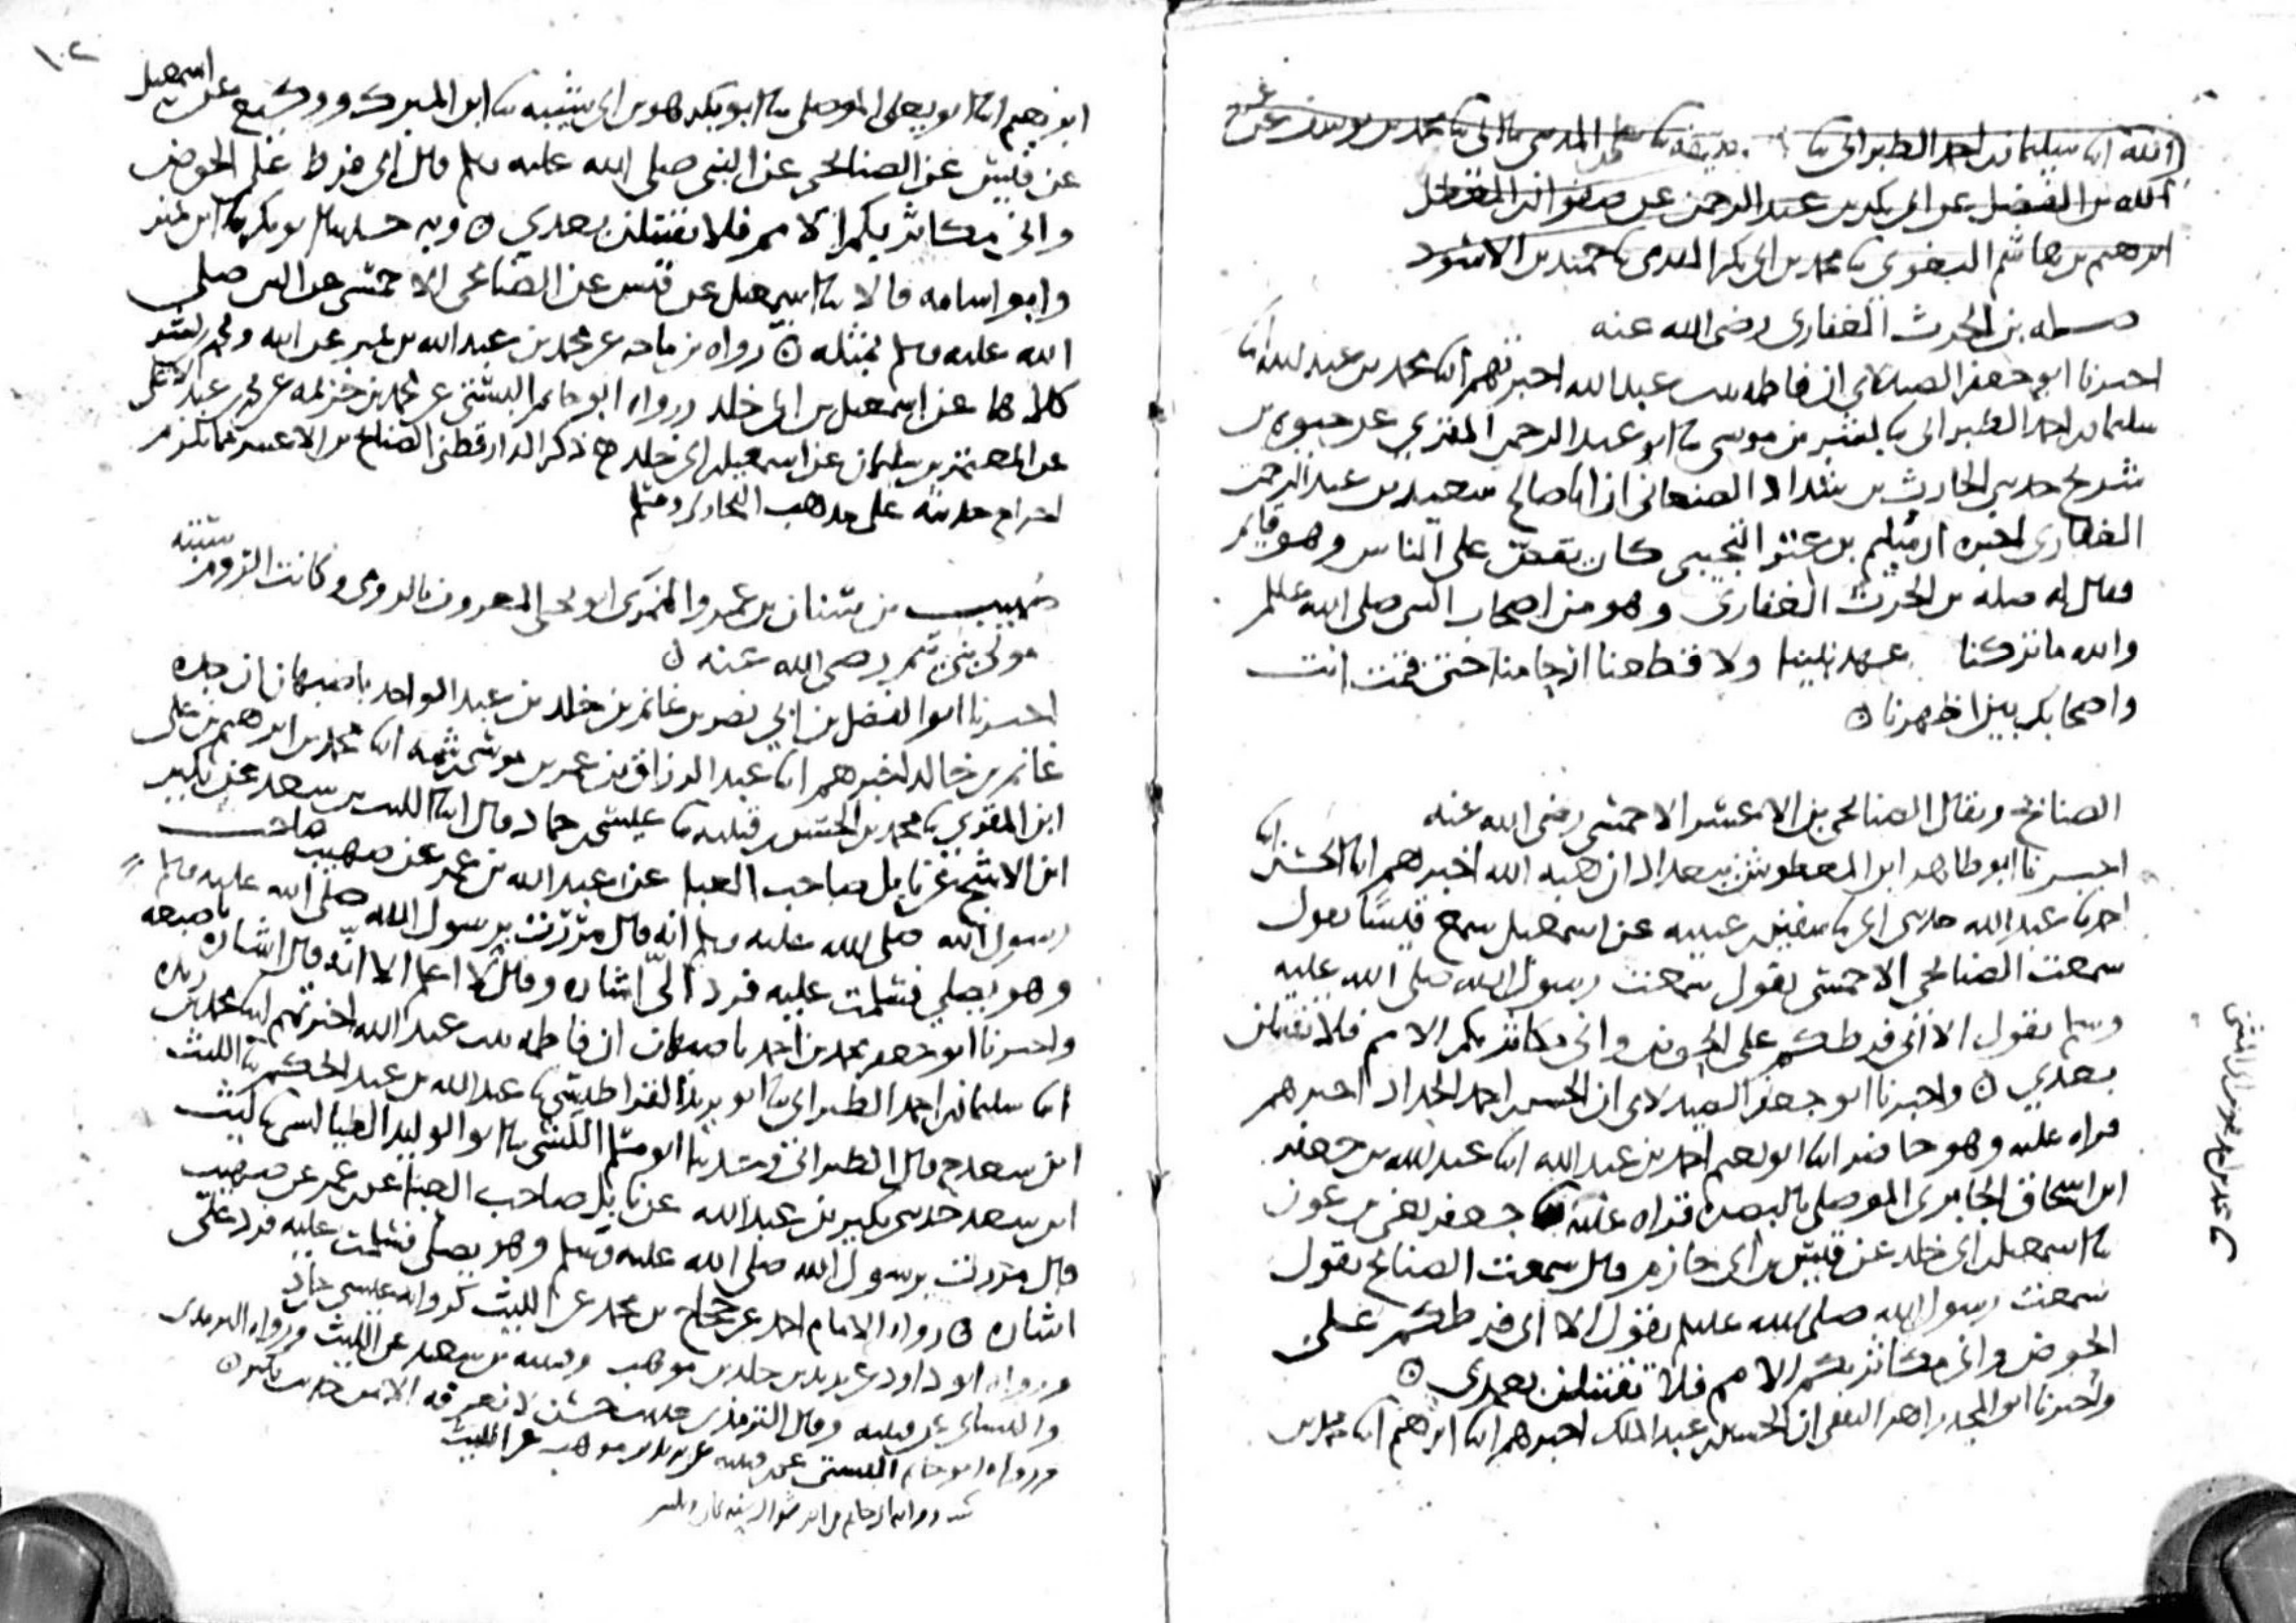 الله بن الفضل عن ابي بكر بن عبد الرحمن عن صفوان بن المعطل
ابرهيم بن هاشم البغوي محمد بن ابي بكر المقدمي حميد بن الاسود
صله بن الحرث الغفاري رضي الله عنه
اخبرنا ابو جعفر الصيدلاني ان فاطمه بنت عبد الله اخبرتهم ابنا محمد بن عبد الله ابنا
سليمان بن احمد الطبراني ثنا بشر بن موسى ثنا ابو عبد الرحمن المقري عن حيوه بن
شريح حدثني الحارث بن شداد الصنعاني ان ابا صالح سعيد بن عبد الرحمن
الغفاري اخبره ان سليم بن عتر التجيبي كان يقص على الناس وهو قايم
فقال له صله بن الحرث الغفاري وهو من اصحاب النبي صلى الله عليه وسلم
والله ما تركنا عهد نبينا ولا قطعنا ارحامنا حتى قمت انت
واصحابك بين اظهرنا ه
الصنابح ويقال الصنابحي بن الاعسر الاحمسي رضي الله عنه
اخبرنا ابو طاهر ابن المعطوش ببغداد ان هبه الله اخبرهم ابنا الحسن ابنا
احمد ثنا عبد الله حدثني ابي ثنا سفين بن عيينه عن اسمعيل سمع قيسا يقول
سمعت الصنابحي الاحمسي يقول سمعت رسول الله صلى الله عليه
وسلم يقول الا اني فرطكم على الحوض واني مكاثر بكم الامم فلا تقتتلن
بعدي ه واخبرنا ابو جعفر الصيدلاني ان الحسن بن احمد الحداد اخبرهم
قراه عليه وهو حاضر ابنا ابو نعيم احمد بن عبد الله ابنا عبد الله بن جعفر
ابن اسحاق الجابري الموصلي بالبصره قراه عليه ثنا جعفر يعني بن عون
ثنا اسمعيل بن ابي خلد عن قيس بن ابي حازم قال سمعت الصنابح يقول
سمعت رسول الله صلى الله عليه وسلم يقول الا اني فرطكم على
الحوض واني مكاثر بكم الامم فلا تقتتلن بعدي ه
واخبرنا ابو المجد زاهر الثقفي ان الحسين بن عبد الملك اخبرهم ابنا ابرهيم ابنا محمد بن
١٠٢
ابرهيم ابنا ابو يعلى الموصلي ثنا ابو بكر هو بن ابي شيبه ثنا ابن المبرك ووكيع عن اسمعيل
عن قيس عن الصنابحي عن النبي صلى الله عليه وسلم قال اني فرط على الحوض
واني مكاثر بكم الامم فلا تقتتلن بعدي ه وبه ثنا ابو بكر ثنا ابن نمير
وابو اسامه قالا ثنا اسمعيل عن قيس عن الصنابحي الاحمسي عن النبي صلى
الله عليه وسلم بمثله ه رواه بن ماجه عن محمد بن عبد الله بن نمير عن ابيه ومحمد بن بشر
كلاهما عن اسمعيل بن ابي خلد ورواه ابو حاتم البستي عن محمد بن خزيمه عن محمد بن عبد الاعلى
عن المعتمر بن سليمان عن اسمعيل بن ابي خلد ذكر الدارقطني الصنابح بن الاعسر فما يلزم
اخراج حديثه على مذهب البخاري ومسلم
صهيب بن سنان بن عمرو النمري ابو يحيى المعروف بالرومي وكانت الروم سبته
مولى بني تيم رضي الله عنه ه
اخبرنا ابو الفضل بن ابي نصر بن غانم بن خلد بن عبد الواحد باصبهان ان جده
غانم بن خالد اخبرهم ابنا عبد الرزاق بن عمر بن موسى بن شمه ابنا محمد بن ابرهيم بن علي
ابن المقري ثنا محمد بن الحسن بن قتيبه ثنا عيسى بن حماد قال ابنا الليث بن سعد عن بكير
ابن الاشج عن نابل صاحب العبا عن عبد الله بن عمر عن صهيب صاحب
رسول الله صلى الله عليه وسلم انه قال مررت برسول الله صلى الله عليه وسلم
وهو يصلي فسلمت عليه فرد الي اشاره وقال لا اعلم الا انه قال اشاره باصبعه
واخبرنا ابو جعفر محمد بن احمد باصبهان ان فاطمه بنت عبد الله اخبرتهم ابنا محمد بن ريذه
ابنا سليمان بن احمد الطبراني ثنا ابو يزيد القراطيسي ثنا عبد الله بن عبد الحكم ثنا الليث
ابن سعد ح قال الطبراني وحدثنا ابو مسلم الكشي ثنا ابو الوليد الطيالسي ثنا ليث
ابن سعد حدثني بكير بن عبد الله عن نابل صاحب العبا عن بن عمر عن صهيب
قال مررت برسول الله صلى الله عليه وسلم وهو يصلي فسلمت عليه فرد علي
اشاره ه رواه الامام احمد عن حجاج بن محمد عن الليث كروايه عيسى بن حماد
ورواه ابو داود عن يزيد بن خلد بن موهب وقتيبه بن سعيد عن الليث ورواه الترمذي
والنسائي عن قتيبه وقال الترمذي حديث حسن لا نعرفه الا من حديث بكير ه
ورواه ابو حاتم البستي عن بن قتيبه عن يزيد بن موهب عن الليث